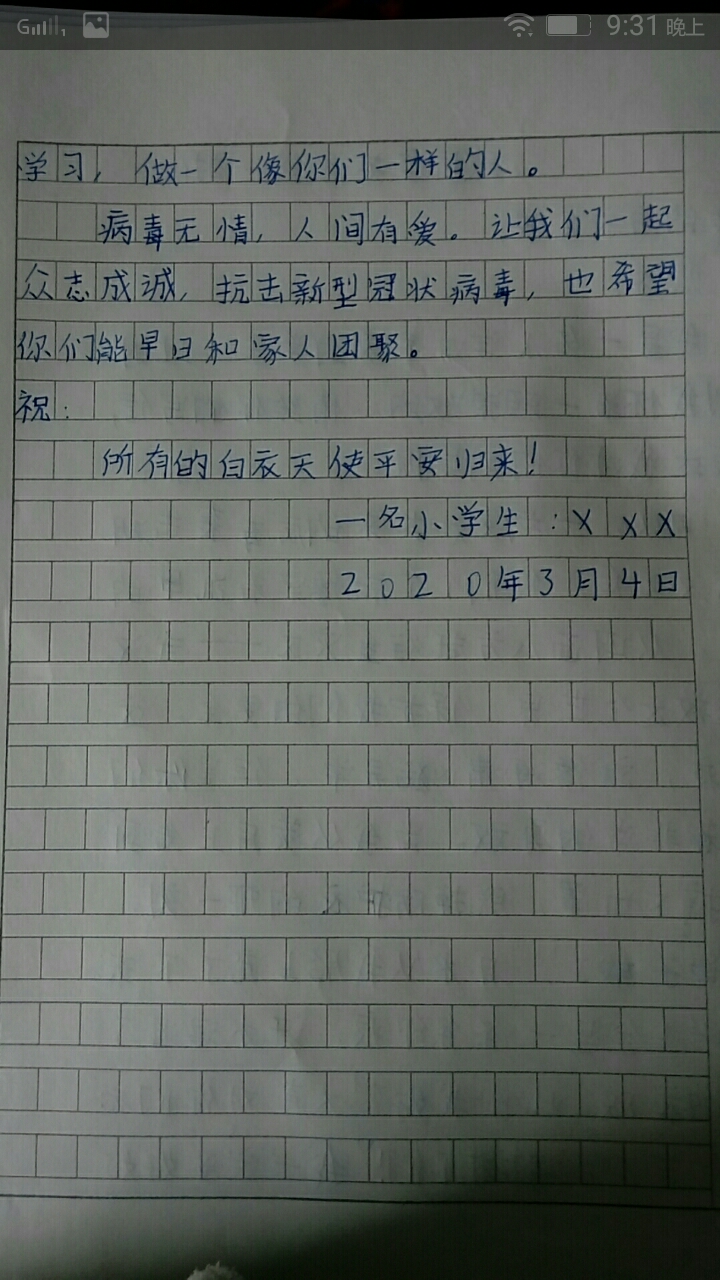 9:31 晚上
学习，做一个像你们一样的人。
病毒无情，人间有爱。让我们一起
众志成诚，抗击新型冠状病毒，也希望
你们能早日和家人团聚。
祝：
所有的白衣天使平安归来！
一名小学生：XXX
2020年3月4日